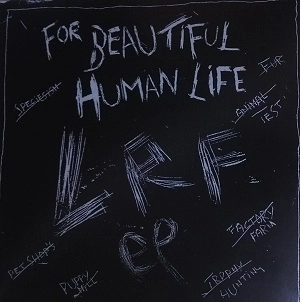 FOR BEAUTIFUL
HUMAN LIFE
FUR
SPECIESISM
ANIMAL
TEST
LRF
EP
FACTORY
FARM
PET SHOPS
PUPPY
MILL
TROPHY
HUNTING